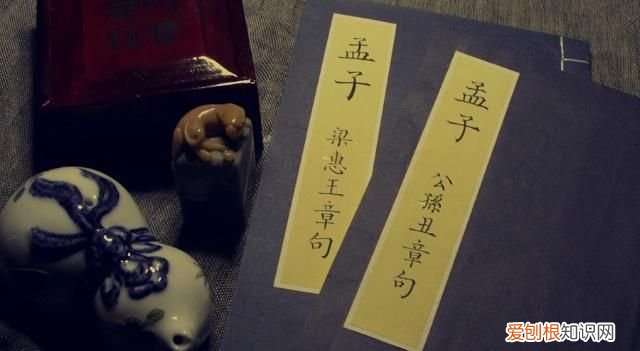 孟子
梁惠王章句
孟子
公孫丑章句
爱刨根知识网